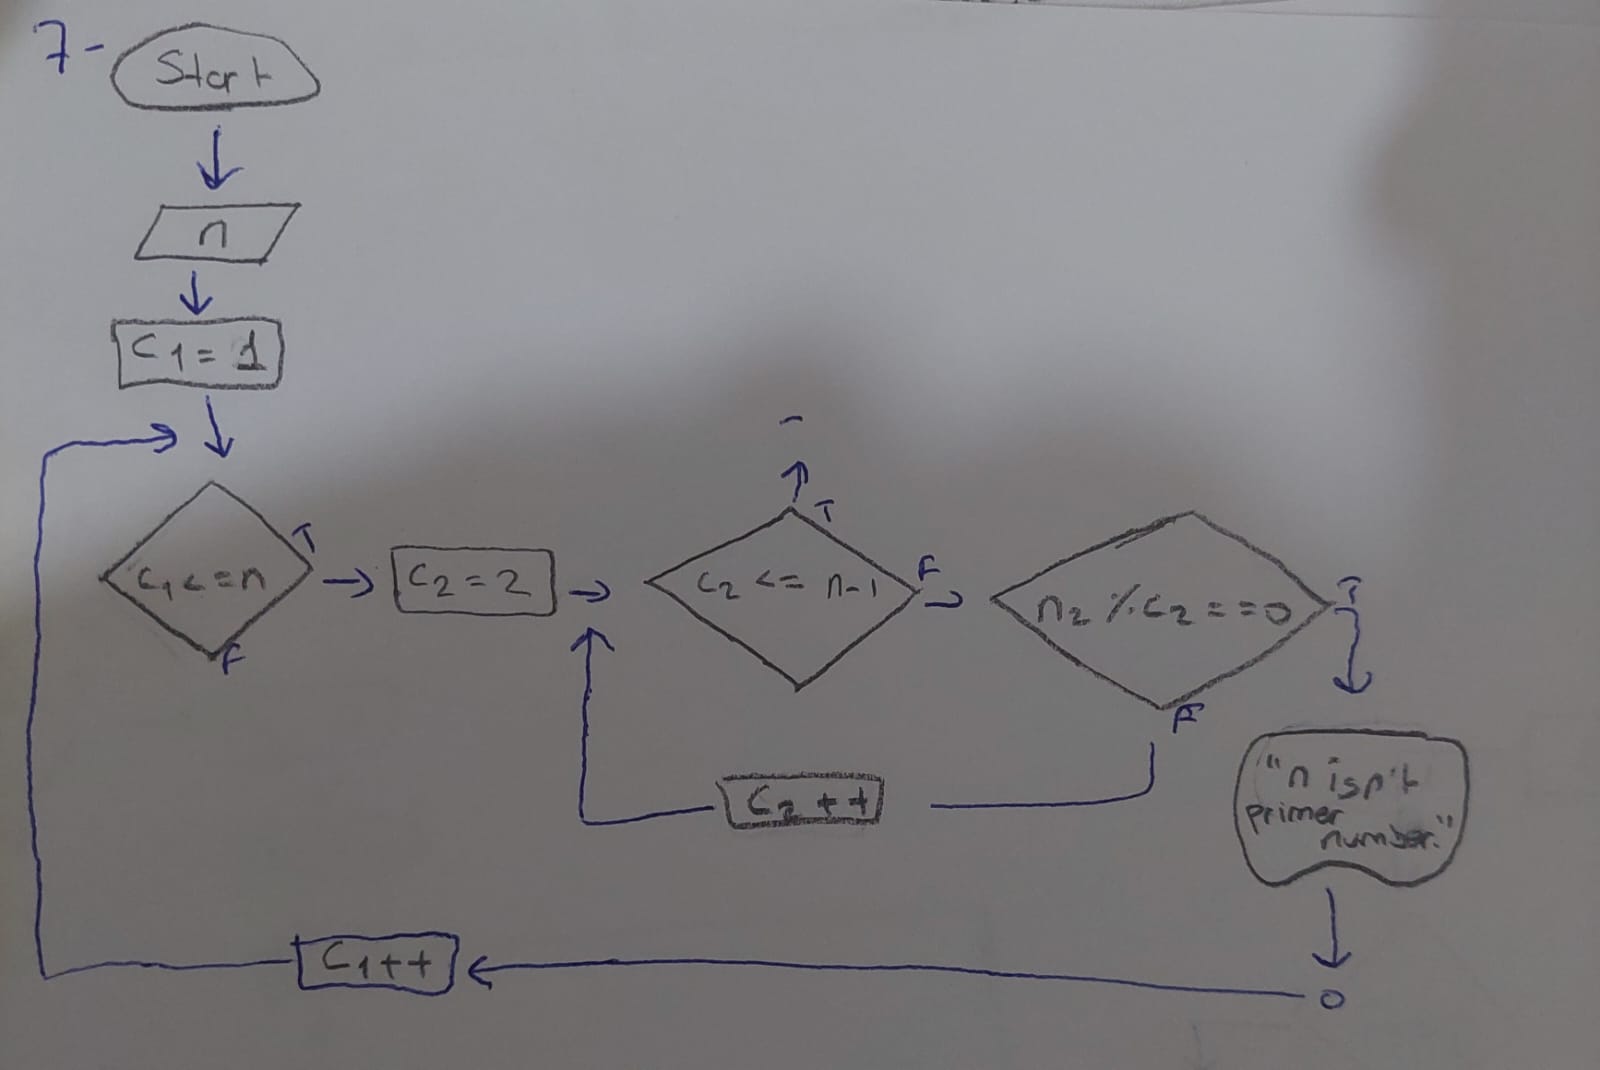 7-
Start
n
C1 = 1
C1 <= n
T
F
C2 = 2
C2 <= n-1
T
-
F
n2 % C2 == 0
T
F
C2 ++
"n isn't
primer
number."
C1++